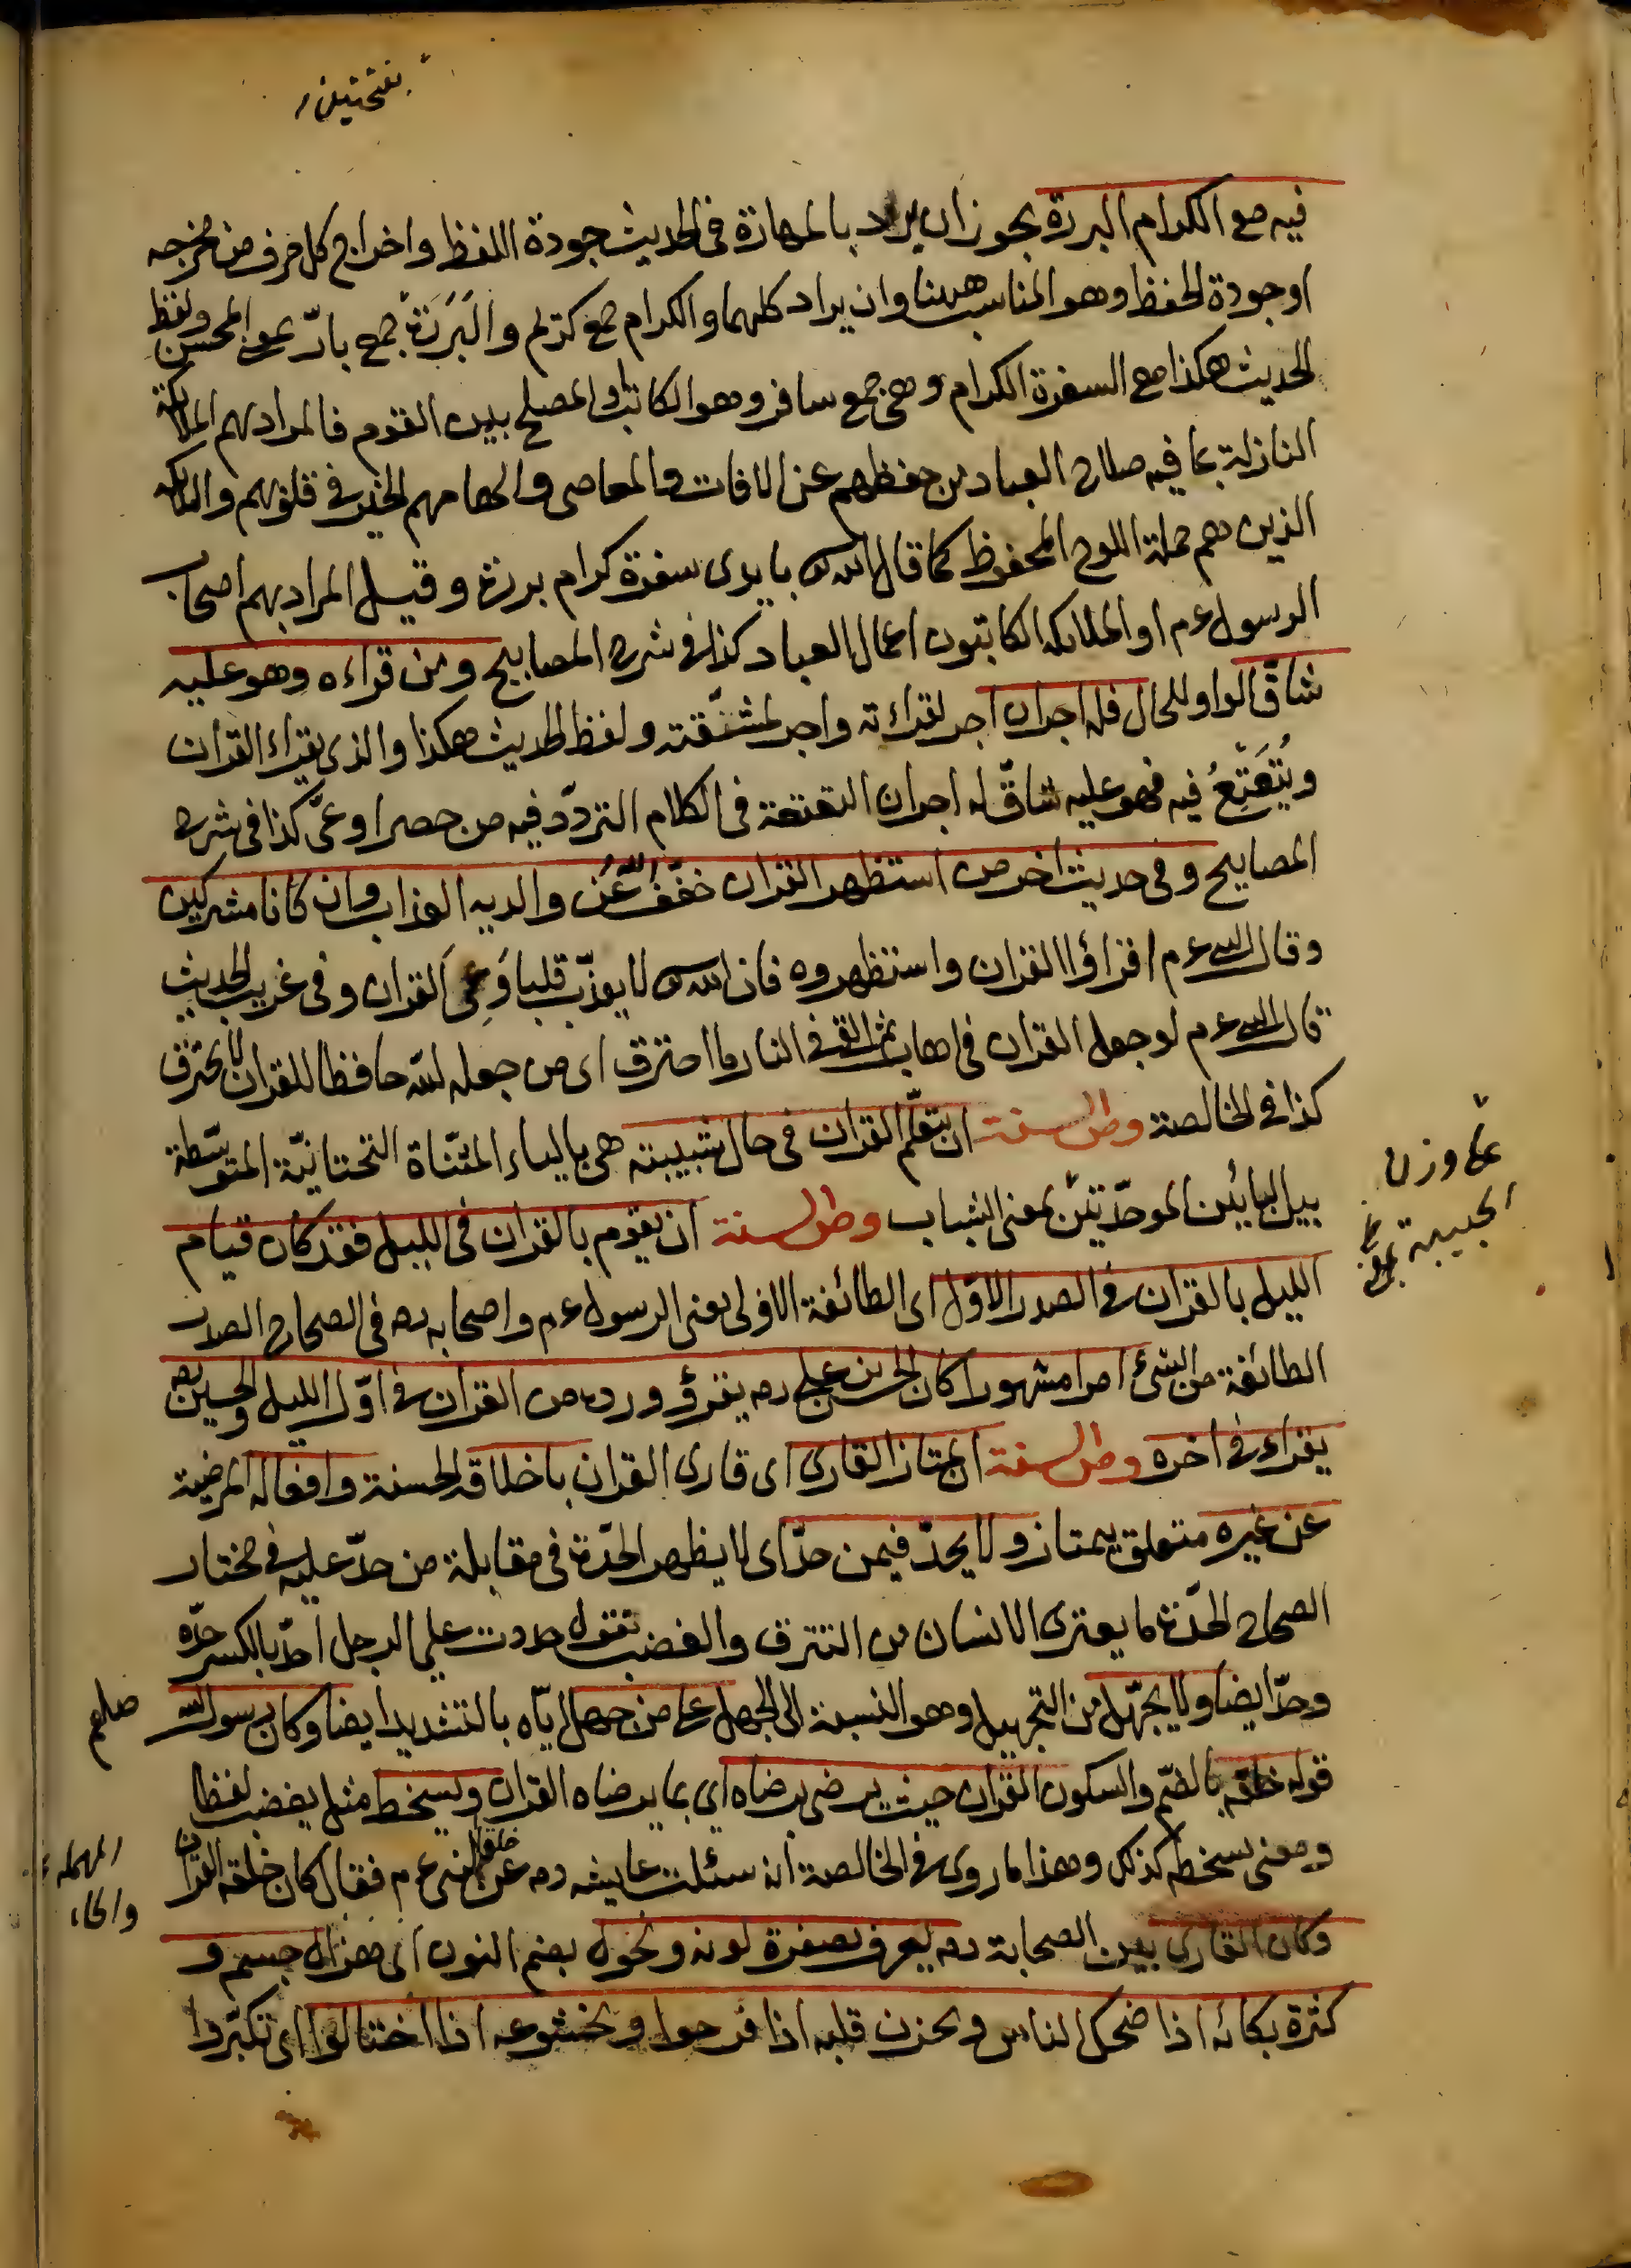 بفتحتين
فيه مع الكرام البررة يجوز ان يراد بالمهارة فى الحديث جودة اللفظ واخراج كل حرف من مخرجه
او جودة الحفظ وهو المناسب ههنا وان يراد كلهما والكرام جمع كريم والبَرَرَة جمع بارّ بمعنى المحسن ولفظ
الحديث هكذا مع السفرة الكرام وهى جمع سافر وهو الكاتب والمصلح بين القوم فالمراد بهم الملائكة
النازلة بما فيه صلاح العباد من حفظهم عن الافات والمعاصى والهامهم الخير فى قلوبهم والملائكة
الذين هم حملة اللوح المحفوظ كما قال الله بايدى سفرة كرام بررة وقيل المراد بهم اصحاب
الرسول عم او الملائكه الكاتبون اعمال العباد كذا فى شرح المصابيح ومن قراءه وهو عليه
شاقّ الواو للحال فله اجران اجر لقراءته واجر لمشقّته ولفظ الحديث هكذا والذى يقراء القران
ويُتَعْتِعُ فيه فهو عليه شاقّ له اجران التعتعة فى الكلام التردّد فيه من حصر او عىّ كذا فى شرح
المصابيح وفى حديث اخر من استظهر القران خفّف الله عن والديه العذاب وان كانا مشركين
وقال عم اقراؤا القران واستظهروه فان الله لا يعذّب قلبا وَعى القران وفى غريب الحديث
قال عم لو جعل القران فى اهاب ثم القى فى النار ما احترق اى من جعله الله حافظا للقران لا يحترق
كذا فى الخالصة ومن السنة ان يتعلّم القران فى حال شبيبته هى بالياء المثنّاة التحتانيّة المتوسّطة
على وزن
الحبيبة
بين البائين الموحّدتين بمعنى الشباب ومن السنة ان يقوم بالقران فى الليل فقد كان قيام
الليل بالقران فى الصدر الاوّل اى الطائفة الاولى يعنى الرسول عم واصحابه رضه فى الصحاح الصدر
الطائفة من الشئ امرا مشهورا كان الحسن بن على رضه يقرؤ ورده من القران فى اوّل الليل والحسين رضه
يقراء فى اخره ومن السنة ان يمتاز القارى اى قارى القران باخلاقه الحسنة وافعاله المرضية
عن غيره متعلق بيمتاز ولا يحدّ فيمن حدّ اى لا يظهر الحدّة فى مقابلة من حدّ عليه فى مختار
الصحاح الحدّة ما يعترى الانسان من النزق والغضب تقول حددت على الرجل احدّ بالكسر حدّه
وحدّا ايضا ولا يجهّل من التجهيل وهو النسبة الى الجهل على من جهل ايّاه بالتشديد ايضا وكان رسول الله
صلعم
قوله خلقه بالضمّ والسكون القران حيث يرضى برضاه اى بما يرضاه القران ويسخط مثل يغضب لفظا
ومعنى بسخطه كذلك وهذا ما روى فى الخالصة انه سئلت عايشه رضه عن خلق النبى عم فقال كان خلقه القران
المهمله
والخاء
وكان القارى بين الصحابة رضه يعرف بصفرة لونه ونحول بضم النون اى هزال جسم و
كثرة بكائه اذا ضحك الناس وبحزن قلبه اذا فرحوا وبخشوعه اذا اختالوا اى تكبّروا